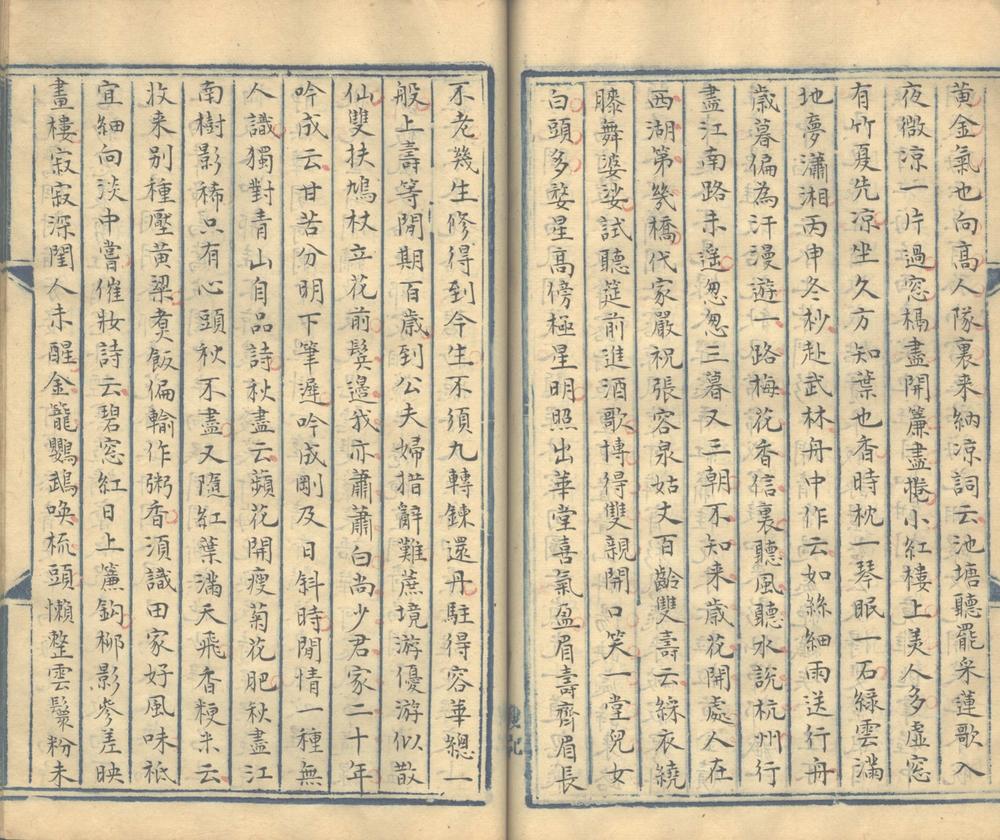 黄金氣也向髙人隊裏来納凉詞云池塘聽罷采蓮歌入
夜微凉一片過窓槅盡開簾盡捲小紅樓上美人多虚窓
有竹夏先凉坐久方知葉也香時枕一琴眠一石緑雲滿
地夢瀟湘丙申冬杪赴武林舟中作云如絲細雨送行舟
歳暮偏為汗漫遊一路梅花香信裏聽風聽水説杭州行
盡江南路未遥怱怱三暮又三朝不知来歳花開處人在
西湖第幾橋代家嚴祝張容泉姑丈百齡雙壽云綵衣繞
膝舞婆娑試聽筵前進酒歌博得雙親開口笑一堂兒女
白頭多婺星髙傍極星明照出華堂喜氣盈眉壽齊眉長
不老幾生修得到今生不須九轉鍊還丹駐得容華總一
般上壽等閒期百歳到公夫婦措辭難蔗境游優游似散
仙雙扶鳩杖立花前鬂邉我亦蕭蕭白尚少君家二十年
吟成云甘苦分明下筆遲吟成剛及日斜時閒情一種無
人識獨對青山自品詩秋盡云蘋花開瘦菊花肥秋盡江
南樹影稀只有心頭秋不盡又隨紅葉滿天飛香粳米云
收来别種壓黄粱煑飯偏輸作粥香須識田家好風味秪
宜細向淡中嘗催妝詩云碧窓紅日上簾鈎栁影参差映
畫樓寂寂深閨人未醒金籠鸚鵡唤梳頭懶整雲鬟粉未